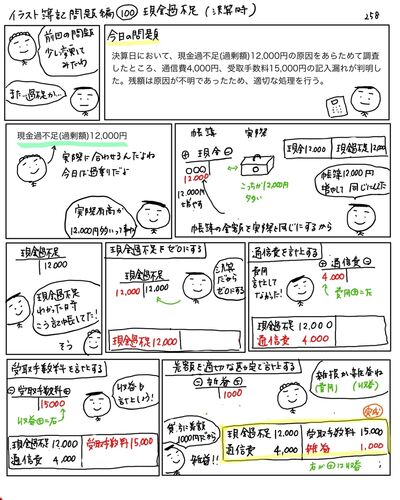 イラスト簿記問題編 100 現金過不足(決算時)
258
前回の問題
少し変えて
みたわ
また過不足か…
今日の問題
決算日において、現金過不足(過剰額)12,000円の原因をあらためて調査
したところ、通信費4,000円、受取手数料15,000円の記入漏れが判明し
た。残額は原因が不明であったため、適切な処理を行う。
現金過不足(過剰額)12,000円
実際に合わせるんだよね
今日は過剰だよ
実際有高が
12,000円多いって事ね
帳簿
実際
⊕ 現金 ⊖
12,000
12,000円
増やす
こっちが12,000円
多い
帳簿の金額を実際と同じにするから
現金12,000 現金過不足12,000
帳簿12,000円
増やして同じにしたんだ
現金過不足
12,000
現金過不足
わかった時
こう記帳してた!
そう
現金過不足をゼロにする
現金過不足
12,000 12,000
決算
だから
ゼロにする
現金過不足 12,000
通信費を計上する
費用
計上して
なかった!
⊕ 通信費 ⊖
4,000
費用⊕=左
現金過不足 12,000
通信費 4,000
受取手数料を計上する
⊖ 受取手数料 ⊕
15000
収益⊕=右
収益も
計上しよう!
現金過不足 12,000 受取手数料 15,000
通信費 4,000
差額を適切な勘定で計上する
⊖ 雑益 ⊕
1000
雑損か雑益ね
(費用) (収益)
貸方に差額
1000円だから
雑益!!
完成
現金過不足 12,000 受取手数料 15,000
通信費 4,000 雑益 1,000
右が⊕は収益